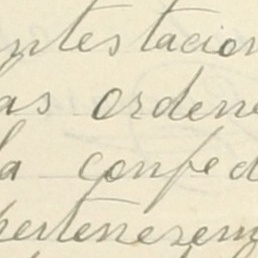 ntestacion
las ordene
la confed
pertenezem